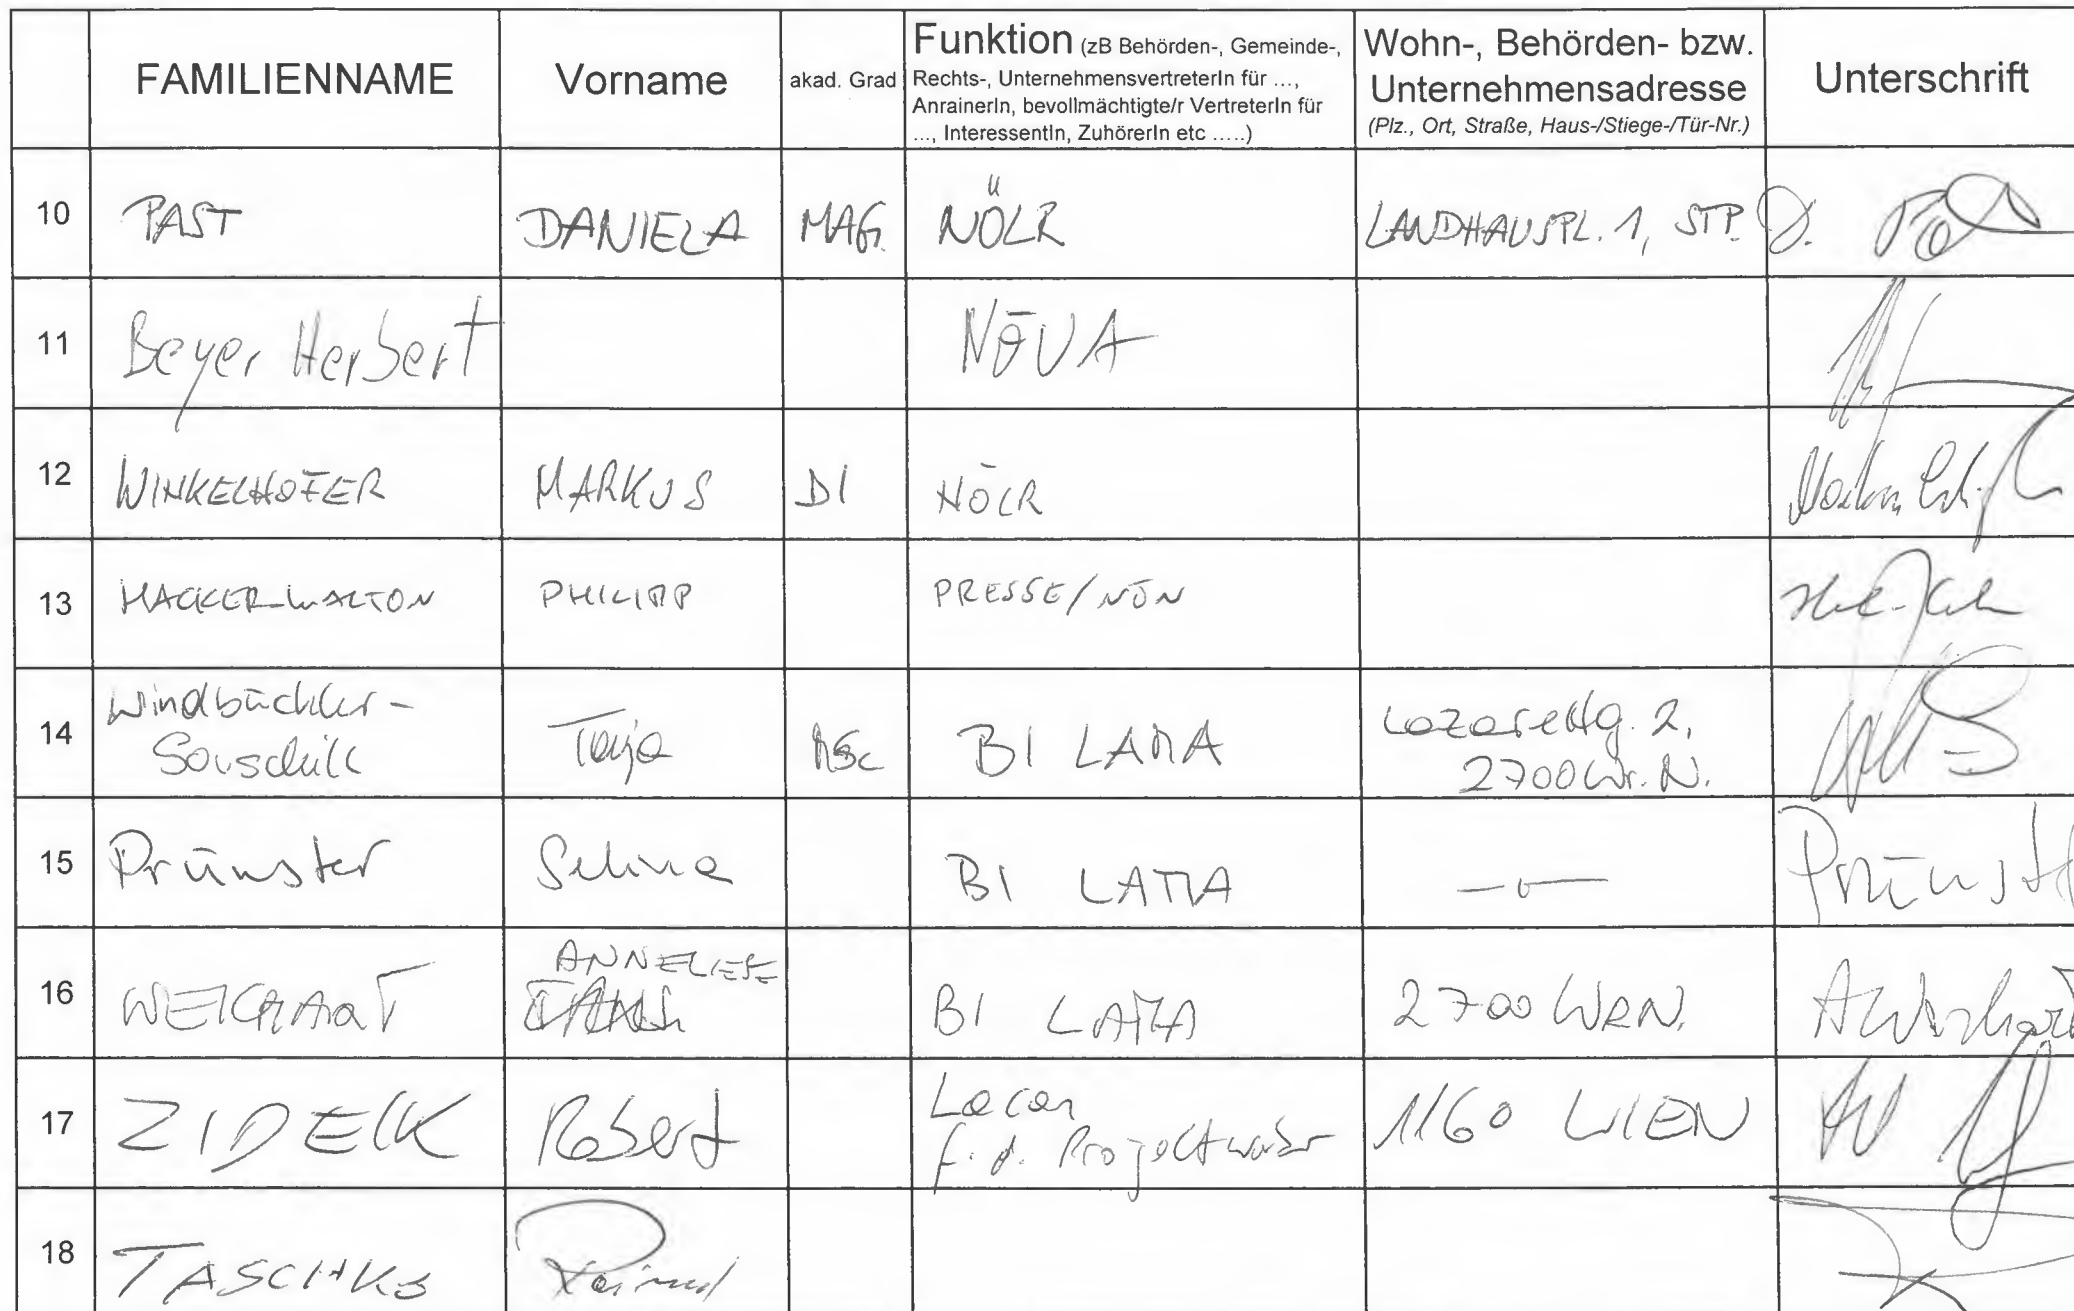 FAMILIENNAME Vorname akad. Grad Funktion (zB Behörden-, Gemeinde-, Rechts-, UnternehmensvertreterIn für ..., AnrainerIn, bevollmächtigte/r VertreterIn für ..., InteressentIn, ZuhörerIn etc .....) Wohn-, Behörden- bzw. Unternehmensadresse (Plz., Ort, Straße, Haus-/Stiege-/Tür-Nr.) Unterschrift
10 PAST DANIELA MAG. NÖLR LANDHAUSPL. 1, STP.
11 Beyer Herbert NÖUA
12 WINKELHOFER MARKUS DI NÖLR
13 HACKER-WALTON PHILIPP PRESSE/NÖN
14 Windbüchler-Souschill Tanja MSc BI LAMA Lazarettg. 2, 2700 Wr. N.
15 Prünster Selina BI LAMA
16 WEICHART ANNELIESE BI LAMA 2700 WRN.
17 Robert f. d. Projektwerber 1160 WIEN
18